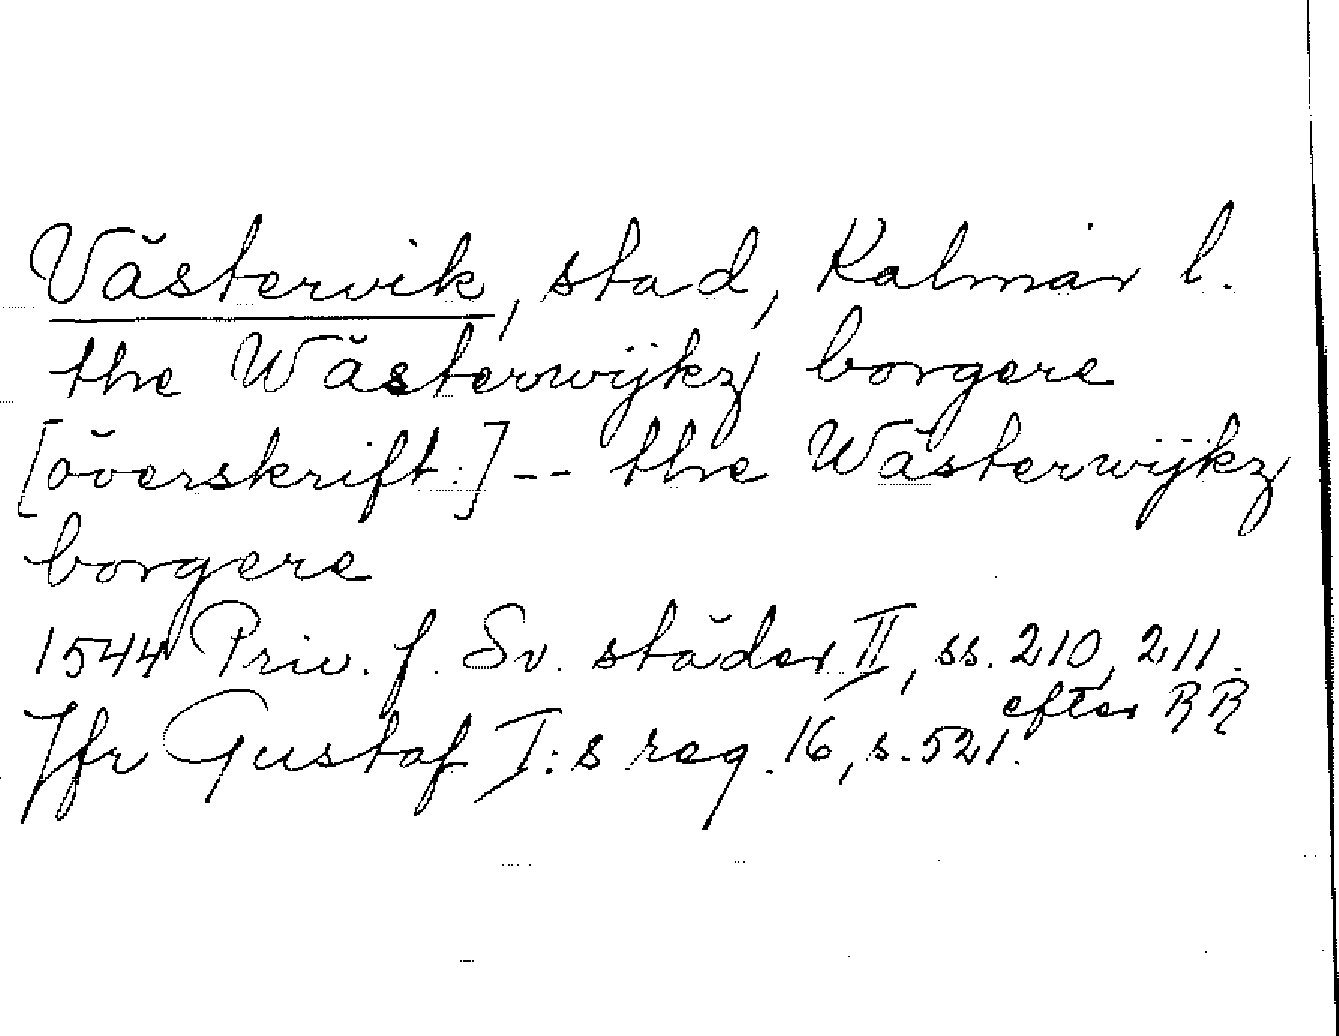 Västervik, stad, Kalmar l.
the Wästerwijkz borgere
[överskrift:] -- the Wästerwijkz
borgere
1544 Priv. f. Sv. städer II, ss. 210, 211.
efter RR
Jfr Gustaf I:s reg. 16, s. 521.